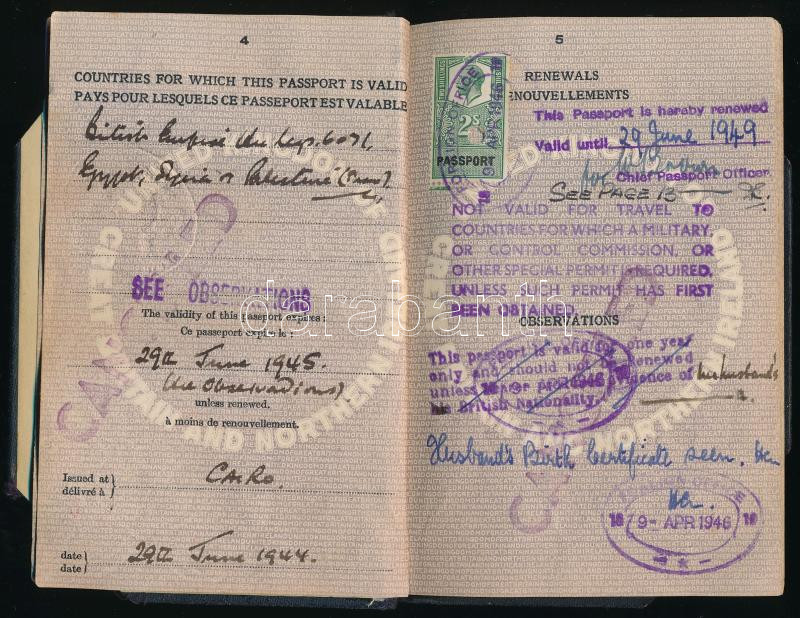 4
COUNTRIES FOR WHICH THIS PASSPORT IS VALID
PAYS POUR LESQUELS CE PASSEPORT EST VALABLE
British Empire
Egypt, Syria & Palestine
SEE OBSERVATIONS
The validity of this passport expires:
Ce passeport expire le:
29th June 1945.
(See Observations).
unless renewed.
à moins de renouvellement.
Issued at
délivré à
CAIRO.
date
date
29th June 1944.
CANC
5
RENEWALS
RENOUVELLEMENTS
2s
PASSPORT
FOREIGN OFFICE
9 APR 1946
This Passport is hereby renewed
Valid until 29 June 1949
for
Chief Passport Officer
SEE PAGE 13
NOT VALID FOR TRAVEL TO
COUNTRIES FOR WHICH A MILITARY,
OR CONTROL COMMISSION, OR
OTHER SPECIAL PERMIT IS REQUIRED,
UNLESS SUCH PERMIT HAS FIRST
BEEN OBTAINED.
OBSERVATIONS
This passport is valid for one year
only and should not be renewed
unless evidence of her husband's
British Nationality.
Husband's Birth Certificate seen.
FOREIGN OFFICE
18 9- APR 1946 18
darabanth